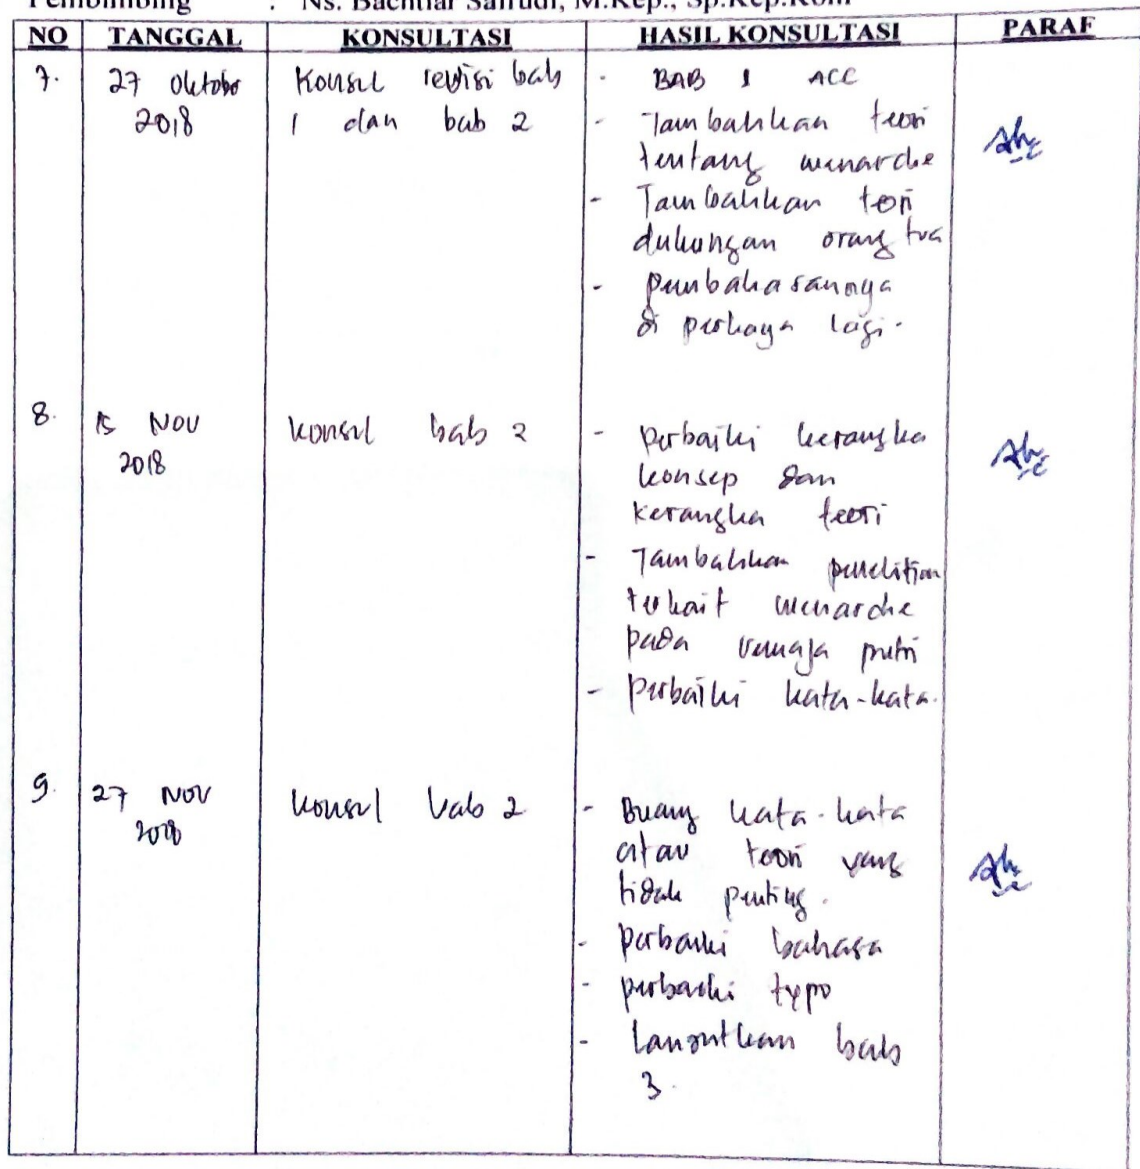 Pembimbing : Ns. Bachtiar Safrudi, M.Kep., Sp.Kep.Kom
NO TANGGAL KONSULTASI HASIL KONSULTASI PARAF
7. 27 Oktober Konsul revisi bab - BAB 1 ACC
2018 1 dan bab 2 - Tambahkan teori
tentang menarche
- Tambahkan teori
dukungan orang tua
- pembahasannya
di perkaya lagi.
8. 15 NOV konsul bab 2 - perbaiki kerangka
2018 konsep dan
kerangka teori
- Tambahkan penelitian
terkait menarche
pada remaja putri
- perbaiki kata-kata.
9. 27 NOV konsul bab 2 - Buang kata-kata
2018 atau teori yang
tidak penting.
- perbaiki bahasa
- perbaiki typo
- lanjutkan bab
3.